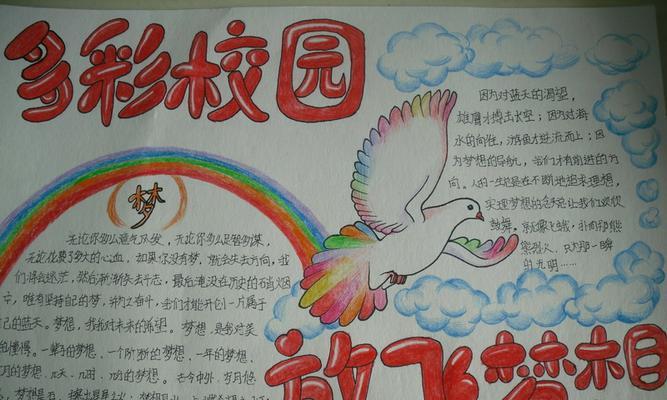 多彩校园
因为对蓝天的渴望，
雄鹰才搏击长空；因为对海
水的向往，游鱼才逆流而上；因
为梦想的导航，我们才有前进的方
向。人的一生总是在不断地追求理想，
实现梦想的念头让我们欢欣
鼓舞。就像飞蛾，扑向那熊
熊烈火，只为那一瞬
的光明……
梦
无论你多么意气风发，无论你多么足智多谋，
无论花费多大的心血，如果你没有梦，就会失去方向，我
们将会迷茫，然后渐渐失去斗志，最后淹没在历史的不消烟
中，唯有坚持自己的梦，并为之奋斗，我们才能开它一片属于
己的蓝天。梦想，我我对未来的希望。梦想，是我对美
憧憬。一辈子的梦想、一个阶段的梦想、一年的梦想、
月的梦想、几天、几时、几分的梦想。古今中外，岁月悠
放飞梦想